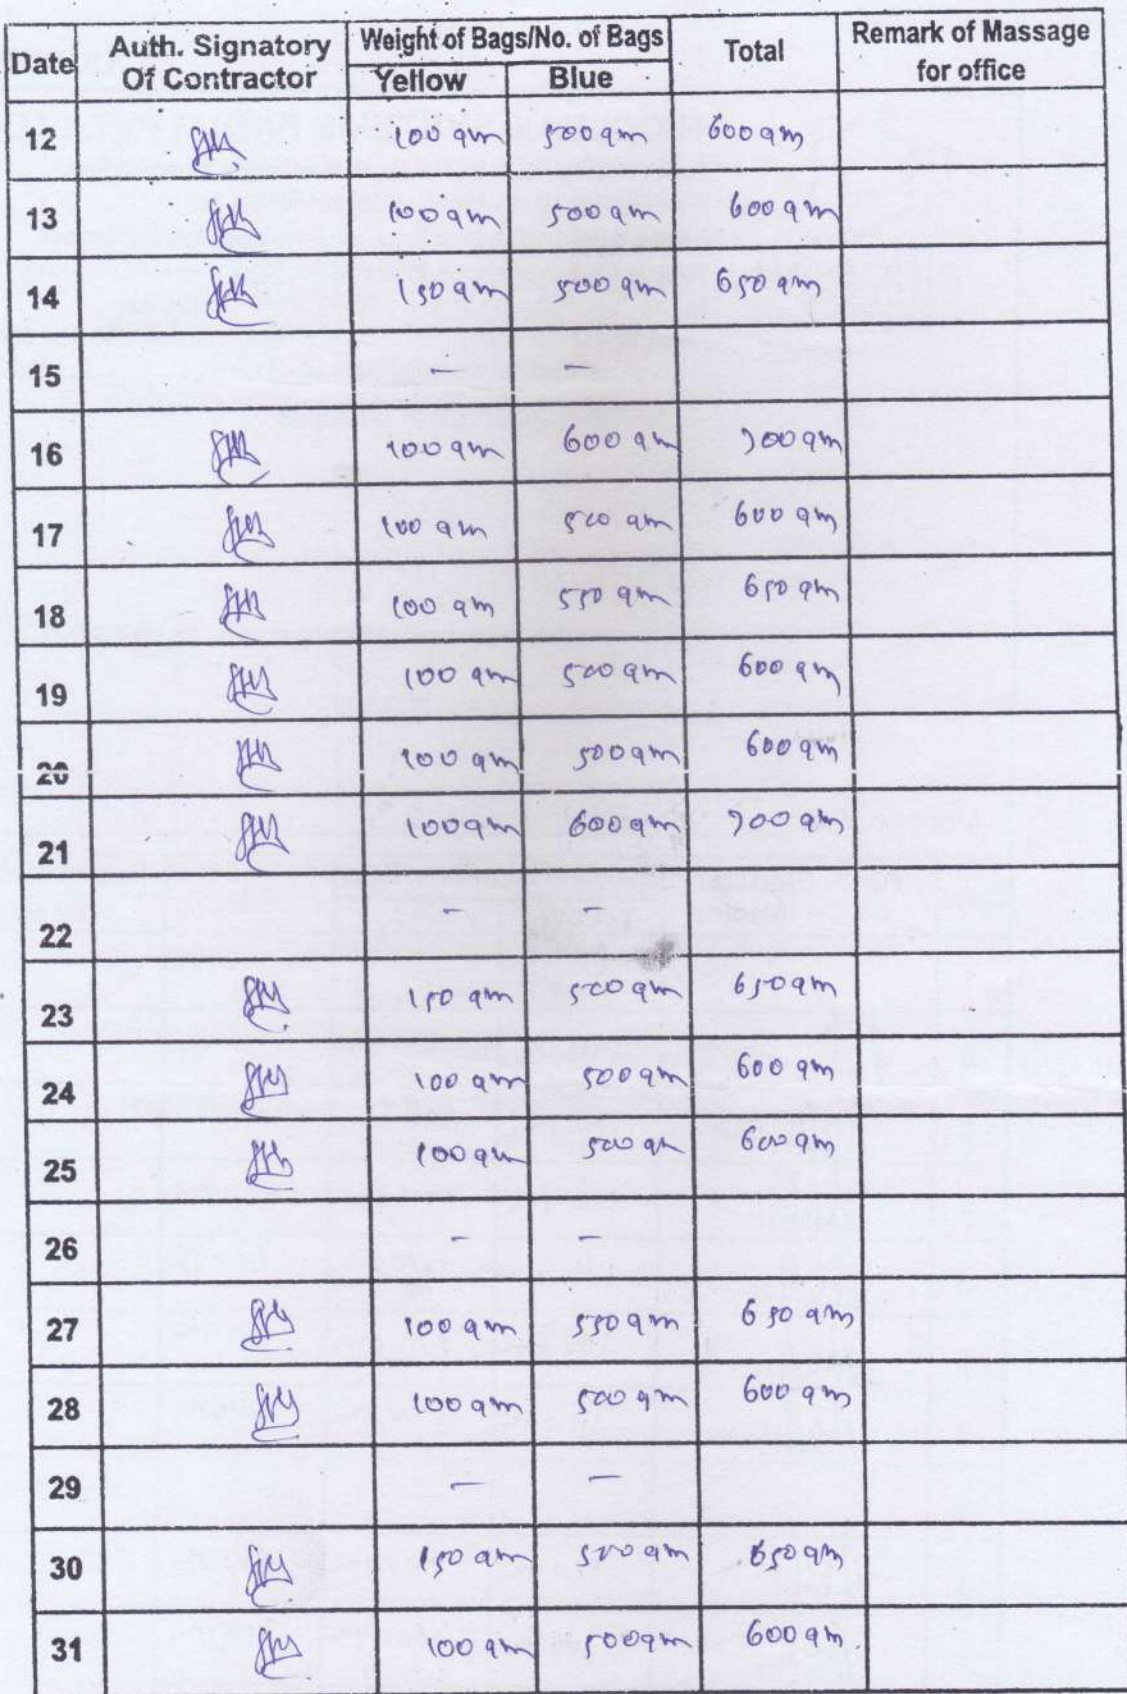 Date Auth. Signatory Of Contractor Weight of Bags/No. of Bags Total Remark of Massage for office
Yellow Blue
12 100 gm 500 gm 600 gm
13 100 gm 500 gm 600 gm
14 150 gm 500 gm 650 gm
15 – –
16 100 gm 600 gm 700 gm
17 100 gm 500 gm 600 gm
18 100 gm 550 gm 650 gm
19 100 gm 500 gm 600 gm
20 100 gm 500 gm 600 gm
21 100 gm 600 gm 700 gm
22 – –
23 150 gm 500 gm 650 gm
24 100 gm 500 gm 600 gm
25 100 gm 500 gm 600 gm
26 – –
27 100 gm 550 gm 650 gm
28 100 gm 500 gm 600 gm
29 – –
30 150 gm 500 gm 650 gm
31 100 gm 500 gm 600 gm.